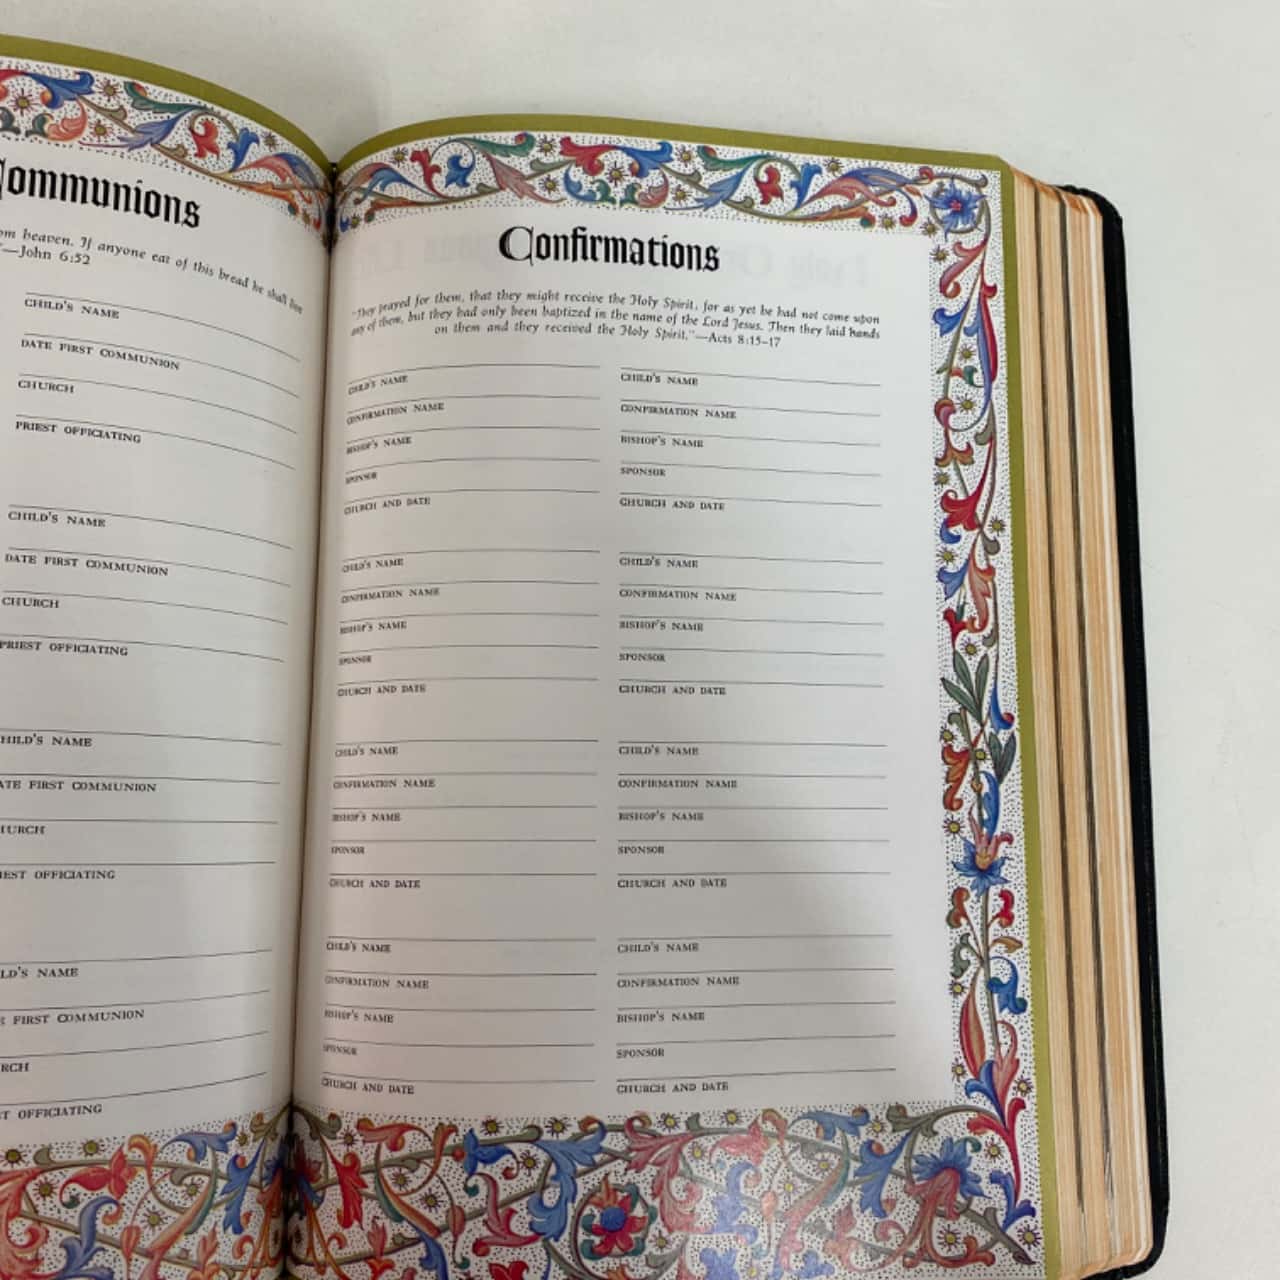 Communions
om heaven. If anyone eat of this bread he shall live
"—John 6:52
CHILD'S NAME
DATE FIRST COMMUNION
CHURCH
PRIEST OFFICIATING
CHILD'S NAME
DATE FIRST COMMUNION
CHURCH
PRIEST OFFICIATING
HILD'S NAME
ATE FIRST COMMUNION
HURCH
IEST OFFICIATING
LD'S NAME
E FIRST COMMUNION
RCH
T OFFICIATING
Confirmations
"They prayed for them, that they might receive the Holy Spirit, for as yet he had not come upon
any of them, but they had only been baptized in the name of the Lord Jesus. Then they laid hands
on them and they received the Holy Spirit."—Acts 8:15-17
CHILD'S NAME
CONFIRMATION NAME
BISHOP'S NAME
SPONSOR
CHURCH AND DATE
CHILD'S NAME
CONFIRMATION NAME
BISHOP'S NAME
SPONSOR
CHURCH AND DATE
CHILD'S NAME
CONFIRMATION NAME
BISHOP'S NAME
SPONSOR
CHURCH AND DATE
CHILD'S NAME
CONFIRMATION NAME
BISHOP'S NAME
SPONSOR
CHURCH AND DATE
CHILD'S NAME
CONFIRMATION NAME
BISHOP'S NAME
SPONSOR
CHURCH AND DATE
CHILD'S NAME
CONFIRMATION NAME
BISHOP'S NAME
SPONSOR
CHURCH AND DATE
CHILD'S NAME
CONFIRMATION NAME
BISHOP'S NAME
SPONSOR
CHURCH AND DATE
CHILD'S NAME
CONFIRMATION NAME
BISHOP'S NAME
SPONSOR
CHURCH AND DATE